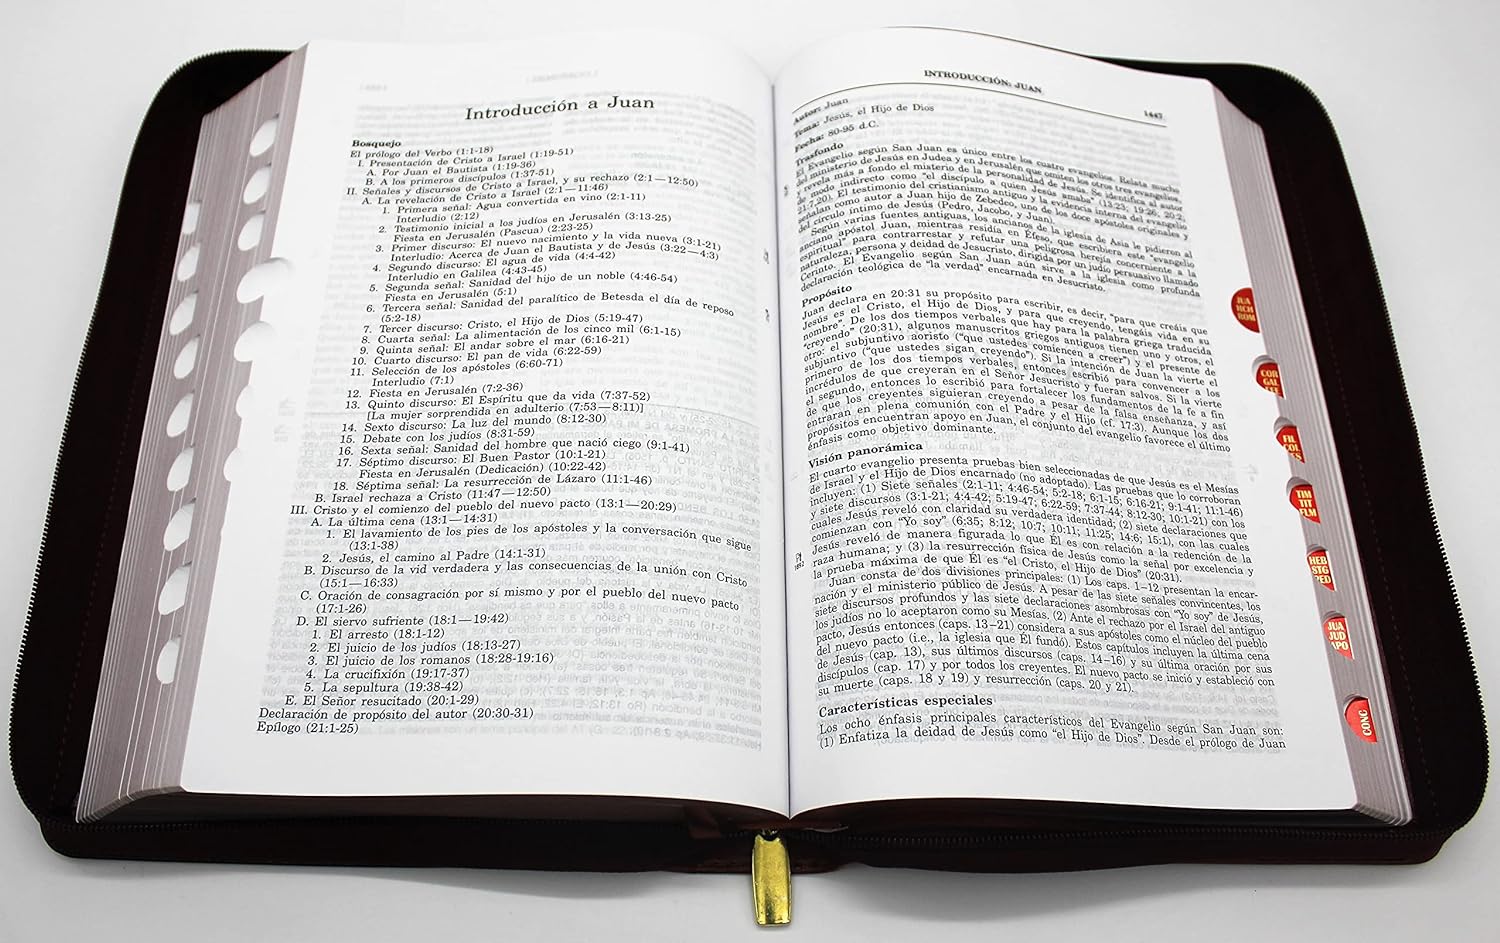 Introducción a Juan
Bosquejo
El prólogo del Verbo (1:1-18)
I. Presentación de Cristo a Israel (1:19-51)
A. Por Juan el Bautista (1:19-36)
B. A los primeros discípulos (1:37-51)
II. Señales y discursos de Cristo a Israel, y su rechazo (2:1—12:50)
A. La revelación de Cristo a Israel (2:1—11:46)
1. Primera señal: Agua convertida en vino (2:1-11)
Interludio (2:12)
2. Testimonio inicial a los judíos en Jerusalén (3:13-25)
Fiesta en Jerusalén (Pascua) (2:23-25)
3. Primer discurso: El nuevo nacimiento y la vida nueva (3:1-21)
Interludio: Acerca de Juan el Bautista y de Jesús (3:22—4:3)
4. Segundo discurso: El agua de vida (4:4-42)
Interludio en Galilea (4:43-45)
5. Segunda señal: Sanidad del hijo de un noble (4:46-54)
Fiesta en Jerusalén (5:1)
6. Tercera señal: Sanidad del paralítico de Betesda el día de reposo
(5:2-18)
7. Tercer discurso: Cristo, el Hijo de Dios (5:19-47)
8. Cuarta señal: La alimentación de los cinco mil (6:1-15)
9. Quinta señal: El andar sobre el mar (6:16-21)
10. Cuarto discurso: El pan de vida (6:22-59)
11. Selección de los apóstoles (6:60-71)
Interludio (7:1)
12. Fiesta en Jerusalén (7:2-36)
13. Quinto discurso: El Espíritu que da vida (7:37-52)
[La mujer sorprendida en adulterio (7:53—8:11)]
14. Sexto discurso: La luz del mundo (8:12-30)
15. Debate con los judíos (8:31-59)
16. Sexta señal: Sanidad del hombre que nació ciego (9:1-41)
17. Séptimo discurso: El Buen Pastor (10:1-21)
Fiesta en Jerusalén (Dedicación) (10:22-42)
18. Séptima señal: La resurrección de Lázaro (11:1-46)
B. Israel rechaza a Cristo (11:47—12:50)
III. Cristo y el comienzo del pueblo del nuevo pacto (13:1—20:29)
A. La última cena (13:1—14:31)
1. El lavamiento de los pies de los apóstoles y la conversación que sigue
(13:1-38)
2. Jesús, el camino al Padre (14:1-31)
B. Discurso de la vid verdadera y las consecuencias de la unión con Cristo
(15:1—16:33)
C. Oración de consagración por sí mismo y por el pueblo del nuevo pacto
(17:1-26)
D. El siervo sufriente (18:1—19:42)
1. El arresto (18:1-12)
2. El juicio de los judíos (18:13-27)
3. El juicio de los romanos (18:28-19:16)
4. La crucifixión (19:17-37)
5. La sepultura (19:38-42)
E. El Señor resucitado (20:1-29)
Declaración de propósito del autor (20:30-31)
Epílogo (21:1-25)
INTRODUCCIÓN: JUAN
1447
Autor: Juan
Tema: Jesús, el Hijo de Dios
Fecha: 80-95 d.C.
Trasfondo
El Evangelio según San Juan es único entre los cuatro evangelios. Relata mucho
del ministerio de Jesús en Judea y en Jerusalén que omiten los otros tres evangelios,
y revela más a fondo el misterio de la personalidad de Jesús. Se identifica el autor
de modo indirecto como "el discípulo a quien Jesús amaba" (13:23; 19:26; 20:2;
21:7,20). El testimonio del cristianismo antiguo y la evidencia interna del evangelio
señalan como autor a Juan hijo de Zebedeo, uno de los doce apóstoles originales y
del círculo íntimo de Jesús (Pedro, Jacobo, y Juan).
Según varias fuentes antiguas, los ancianos de la iglesia de Asia le pidieron al
anciano apóstol Juan, mientras residía en Éfeso, que escribiera este "evangelio
espiritual" para contrarrestar y refutar una peligrosa herejía concerniente a la
naturaleza, persona y deidad de Jesucristo, dirigida por un judío persuasivo llamado
Cerinto. El Evangelio según San Juan aún sirve a la iglesia como profunda
declaración teológica de "la verdad" encarnada en Jesucristo.
Propósito
Juan declara en 20:31 su propósito para escribir, es decir, "para que creáis que
Jesús es el Cristo, el Hijo de Dios, y para que creyendo, tengáis vida en su
nombre". De los dos tiempos verbales que hay para la palabra griega traducida
"creyendo" (20:31), algunos manuscritos griegos antiguos tienen uno y otros, el
otro: el subjuntivo aoristo ("que ustedes comiencen a creer") y el presente de
subjuntivo ("que ustedes sigan creyendo"). Si la intención de Juan la vierte el
primero de los dos tiempos verbales, entonces escribió para convencer a los
incrédulos de que creyeran en el Señor Jesucristo y fueran salvos. Si la vierte
el segundo, entonces lo escribió para fortalecer los fundamentos de la fe a fin
de que los creyentes siguieran creyendo a pesar de la falsa enseñanza, y así
entraran en plena comunión con el Padre y el Hijo (cf. 17:3). Aunque los dos
propósitos encuentran apoyo en Juan, el conjunto del evangelio favorece el último
énfasis como objetivo dominante.
Visión panorámica
El cuarto evangelio presenta pruebas bien seleccionadas de que Jesús es el Mesías
de Israel y el Hijo de Dios encarnado (no adoptado). Las pruebas que lo corroboran
incluyen: (1) Siete señales (2:1-11; 4:46-54; 5:2-18; 6:1-15; 6:16-21; 9:1-41; 11:1-46)
y siete discursos (3:1-21; 4:4-42; 5:19-47; 6:22-59; 7:37-44; 8:12-30; 10:1-21) con los
cuales Jesús reveló con claridad su verdadera identidad; (2) siete declaraciones que
comienzan con "Yo soy" (6:35; 8:12; 10:7; 10:11; 11:25; 14:6; 15:1), con las cuales
Jesús reveló de manera figurada lo que Él es con relación a la redención de la
raza humana; y (3) la resurrección física de Jesús como la señal por excelencia y
la prueba máxima de que Él es "el Cristo, el Hijo de Dios" (20:31).
Juan consta de dos divisiones principales: (1) Los caps. 1–12 presentan la encar-
nación y el ministerio público de Jesús. A pesar de las siete señales convincentes, los
siete discursos profundos y las siete declaraciones asombrosas con "Yo soy" de Jesús,
los judíos no lo aceptaron como su Mesías. (2) Ante el rechazo por el Israel del antiguo
pacto, Jesús entonces (caps. 13–21) considera a sus apóstoles como el núcleo del pueblo
del nuevo pacto (i.e., la iglesia que Él fundó). Estos capítulos incluyen la última cena
de Jesús (cap. 13), sus últimos discursos (caps. 14–16) y su última oración por sus
discípulos (cap. 17) y por todos los creyentes. El nuevo pacto se inició y estableció con
su muerte (caps. 18 y 19) y resurrección (caps. 20 y 21).
Características especiales
Los ocho énfasis principales característicos del Evangelio según San Juan son:
(1) Enfatiza la deidad de Jesús como "el Hijo de Dios". Desde el prólogo de Juan
JUA
HCH
ROM
COR
GAL
FIL
COL
TIM
TIT
FLM
HEB
STG
PED
JUA
JUD
APO
CONC